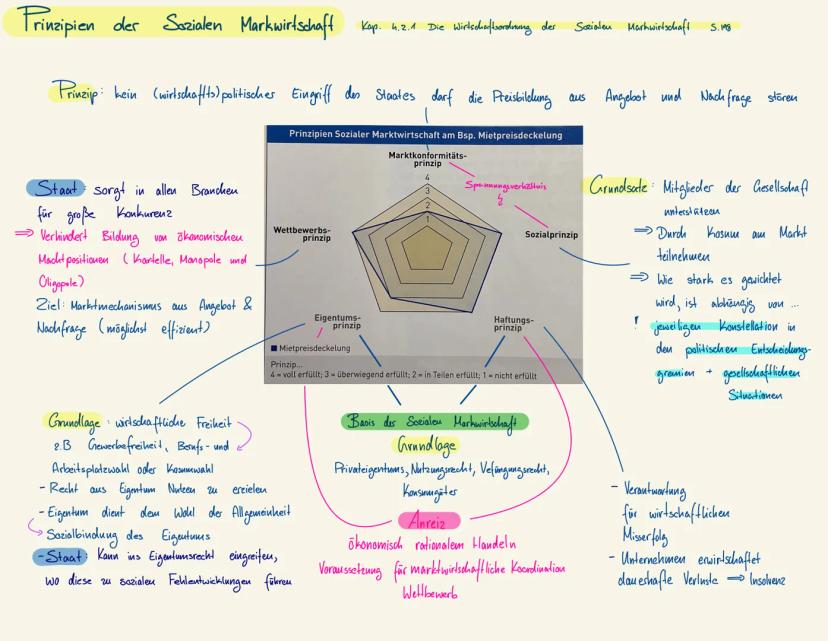 Prinzipien der Sozialen Markwirtschaft
Kap. 4.2.1 Die Wirtschaftsordnung der Sozialen Markwirtschaft S.198
Prinzip: kein (wirtschaftts)politischer Eingriff des Staates darf die Preisbildung aus Angebot und Nachfrage stören
Prinzipien Sozialer Marktwirtschaft am Bsp. Mietpreisdeckelung
Marktkonformitäts-
prinzip
4
3
2
1
Spannungsverhältnis
Wettbewerbs-
prinzip
Sozialprinzip
Eigentums-
prinzip
Haftungs-
prinzip
Mietpreisdeckelung
Prinzip...
4 = voll erfüllt; 3 = überwiegend erfüllt; 2 = in Teilen erfüllt; 1 = nicht erfüllt
Staat: sorgt in allen Branchen
für große Konkurenz
⇒ Verhindert Bildung von ökonomischen
Machtpositionen (Kartelle, Monopole und
Oligopole)
Ziel: Marktmechanismus aus Angebot &
Nachfrage (möglichst effizient)
Grundsatz: Mitglieder der Gesellschaft
unterstützen
⇒ Durch Kosnum am Markt
teilnehmen
⇒ Wie stark es gewichtet
wird, ist abhängig von ...
! jeweiligen Konstellation in
den politischen Entscheidungs-
gremien + gesellschaftlichen
Situationen
Grundlage: wirtschaftliche Freiheit
z.B Gewerbefreiheit, Berufs- und
Arbeitsplatzwahl oder Konsumwahl
- Recht aus Eigentum Nutzen zu erzielen
- Eigentum dient dem Wohl der Allgemeinheit
Sozialbindung des Eigentums
- Staat: Kann ins Eigentumsrecht eingreifen,
wo diese zu sozialen Fehlentwicklungen führen
Basis der Sozialen Markwirtschaft
Grundlage
Privateigentums, Nutzungsrecht, Vefügungsrecht,
Konsumgüter
Anreiz
ökonomisch rationalem Handeln
Voraussetzung für marktwirtschaftliche Koordination
Wettbewerb
- Verantwortung
für wirtschaftlichen
Misserfolg
- Unternehmen erwirtschaftet
dauerhafte Verluste ⇒ Insolvenz